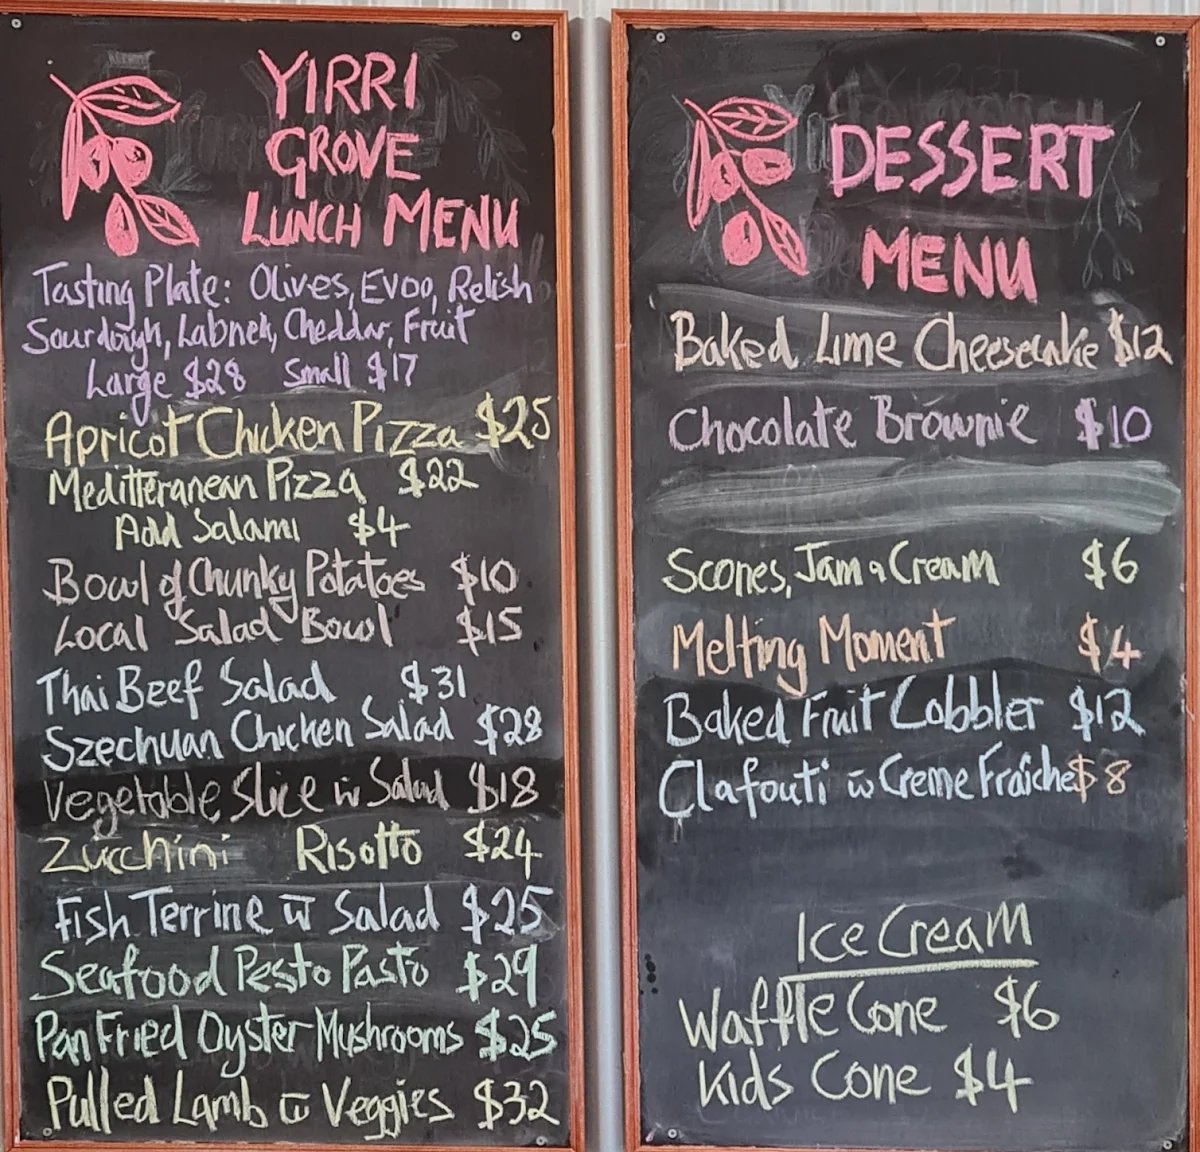 YIRRI
GROVE
LUNCH MENU
Tasting Plate: Olives, Evoo, Relish
Sourdough, Labneh, Cheddar, Fruit
Large $28 Small $17
Apricot Chicken Pizza $25
Meditteranean Pizza $22
Add Salami $4
Bowl of Chunky Potatoes $10
Local Salad Bowl $15
Thai Beef Salad $31
Szechuan Chicken Salad $28
Vegetable Slice w Salad $18
Zucchini Risotto $24
Fish Terrine w Salad $25
Seafood Pesto Pasto $29
Pan Fried Oyster Mushrooms $25
Pulled Lamb w Veggies $32
DESSERT
MENU
Baked Lime Cheesecake $12
Chocolate Brownie $10
Scones, Jam & Cream $6
Melting Moment $4
Baked Fruit Cobbler $12
Clafouti w Creme Fraîche $8
Ice Cream
Waffle Cone $6
Kids Cone $4